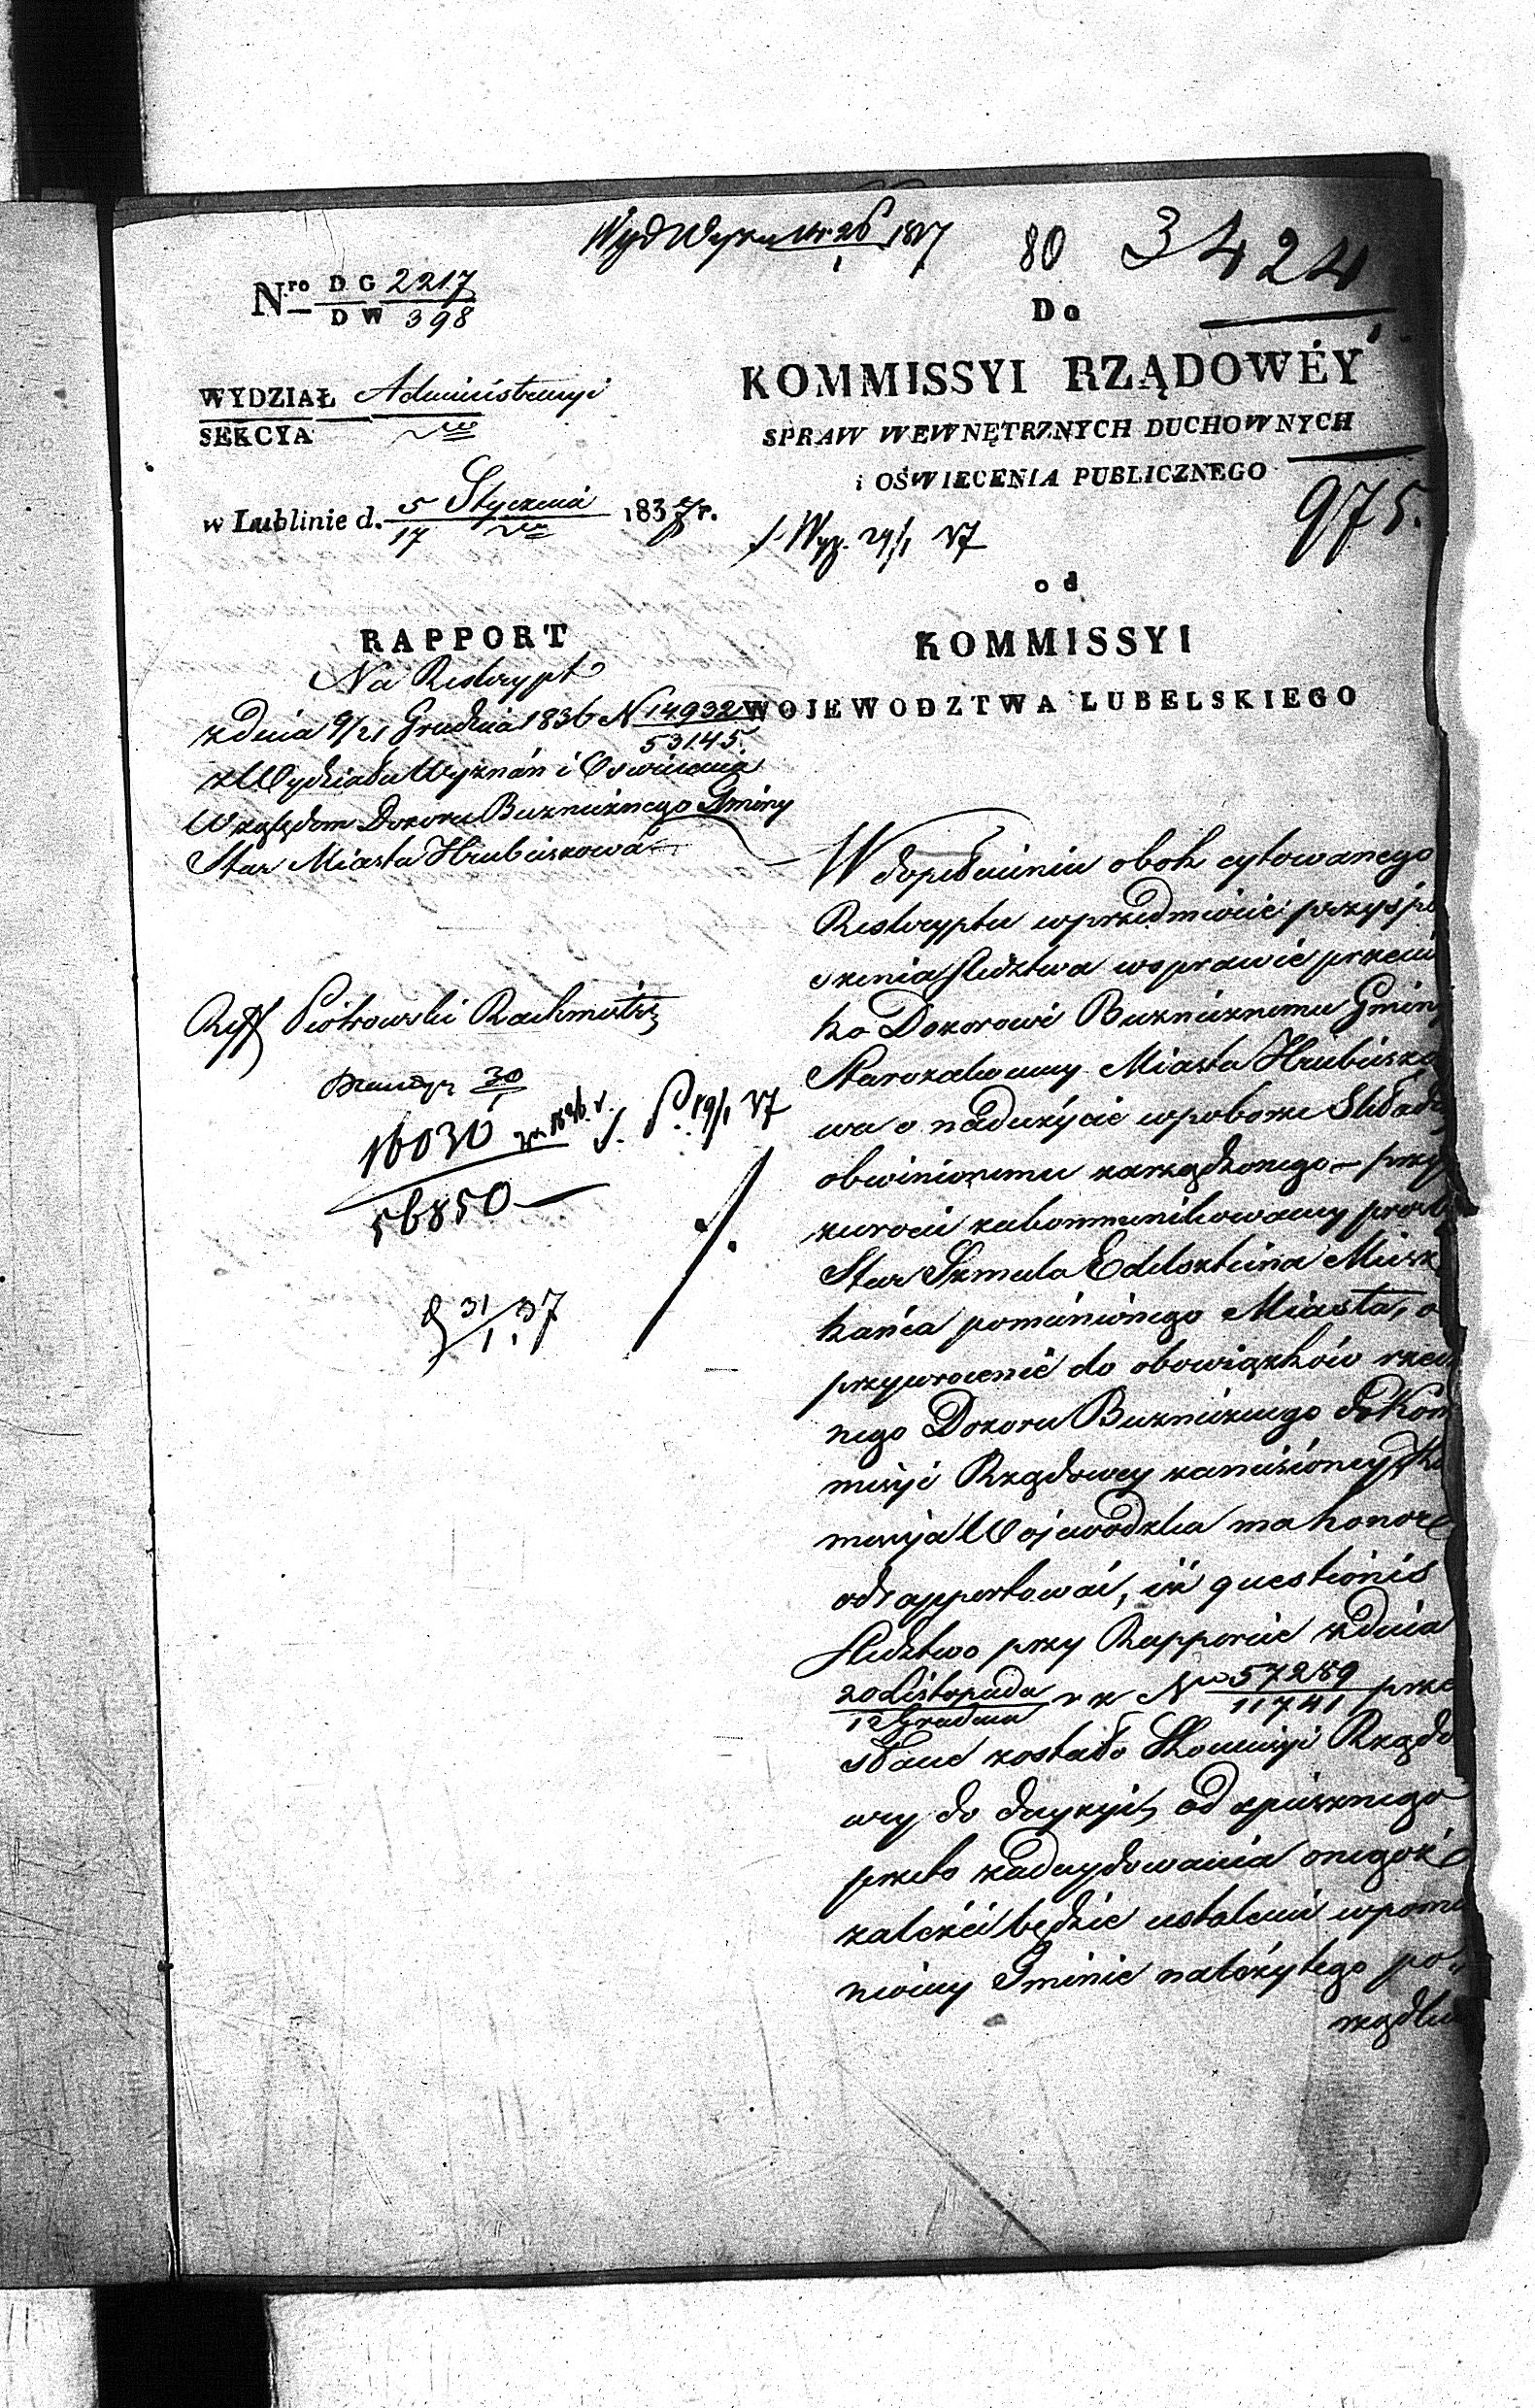 Wyd Wyzn Nr 26/1 1837
80 3424
N.ro D G 2217
D W 398
Do
KOMMISSYI RZĄDOWÉY
WYDZIAŁ Administracyi
SEKCYA
SPRAW WEWNĘTRZNYCH DUCHOWNYCH
i OŚWIECENIA PUBLICZNEGO
975.
w Lublinie d. 5/17 Stycznia 1837 r.
29/1 37
od
RAPPORT
KOMMISSYI
WOJEWODZTWA LUBELSKIEGO
Na Reskrypt
z dnia 9/21 Grudnia 1836 N 14932
53145.
z Wydziału Wyznań i Oświecenia
Względem Dozoru Bużnicznego Gminy
Star Miasta Hrubieszowa
Reff Piotrowski Rachmistrz
30
16030
56850
19/1 37
31/1 37
W dopełnieniu obok cytowanego
Reskryptu w przedmiocie przyspie
szenia śledztwa w sprawie przeciw
ko Dozorowi Bużnicznemu Gminy
Starozakonney Miasta Hrubieszo
wa o nadużycie w poborze Składki
obwinionemu zarządzonego – przy
zwrocie zakommunikowaney prośby
Star Szmula Edelszteina Miesz
kańca pomienionego Miasta, o
przywrocenie do obowiązków rzeczo
nego Dozoru Bużnicznego do Kom
missyi Rządowey zaniesioney, Kom
missya Wojewodzka ma honor
odrapportować, iż questionis
śledztwo przy Rapporcie z dnia
20 Listopada
12 Grudnia r z Nro 57289
11741 prze
słane zostało Kommissyi Rządo
wey do decyzyi, od spiesznego
przeto zadecydowania onegoż
zależeć będzie ustalenie w pomie
nioney Gminie należytego po„
rządku